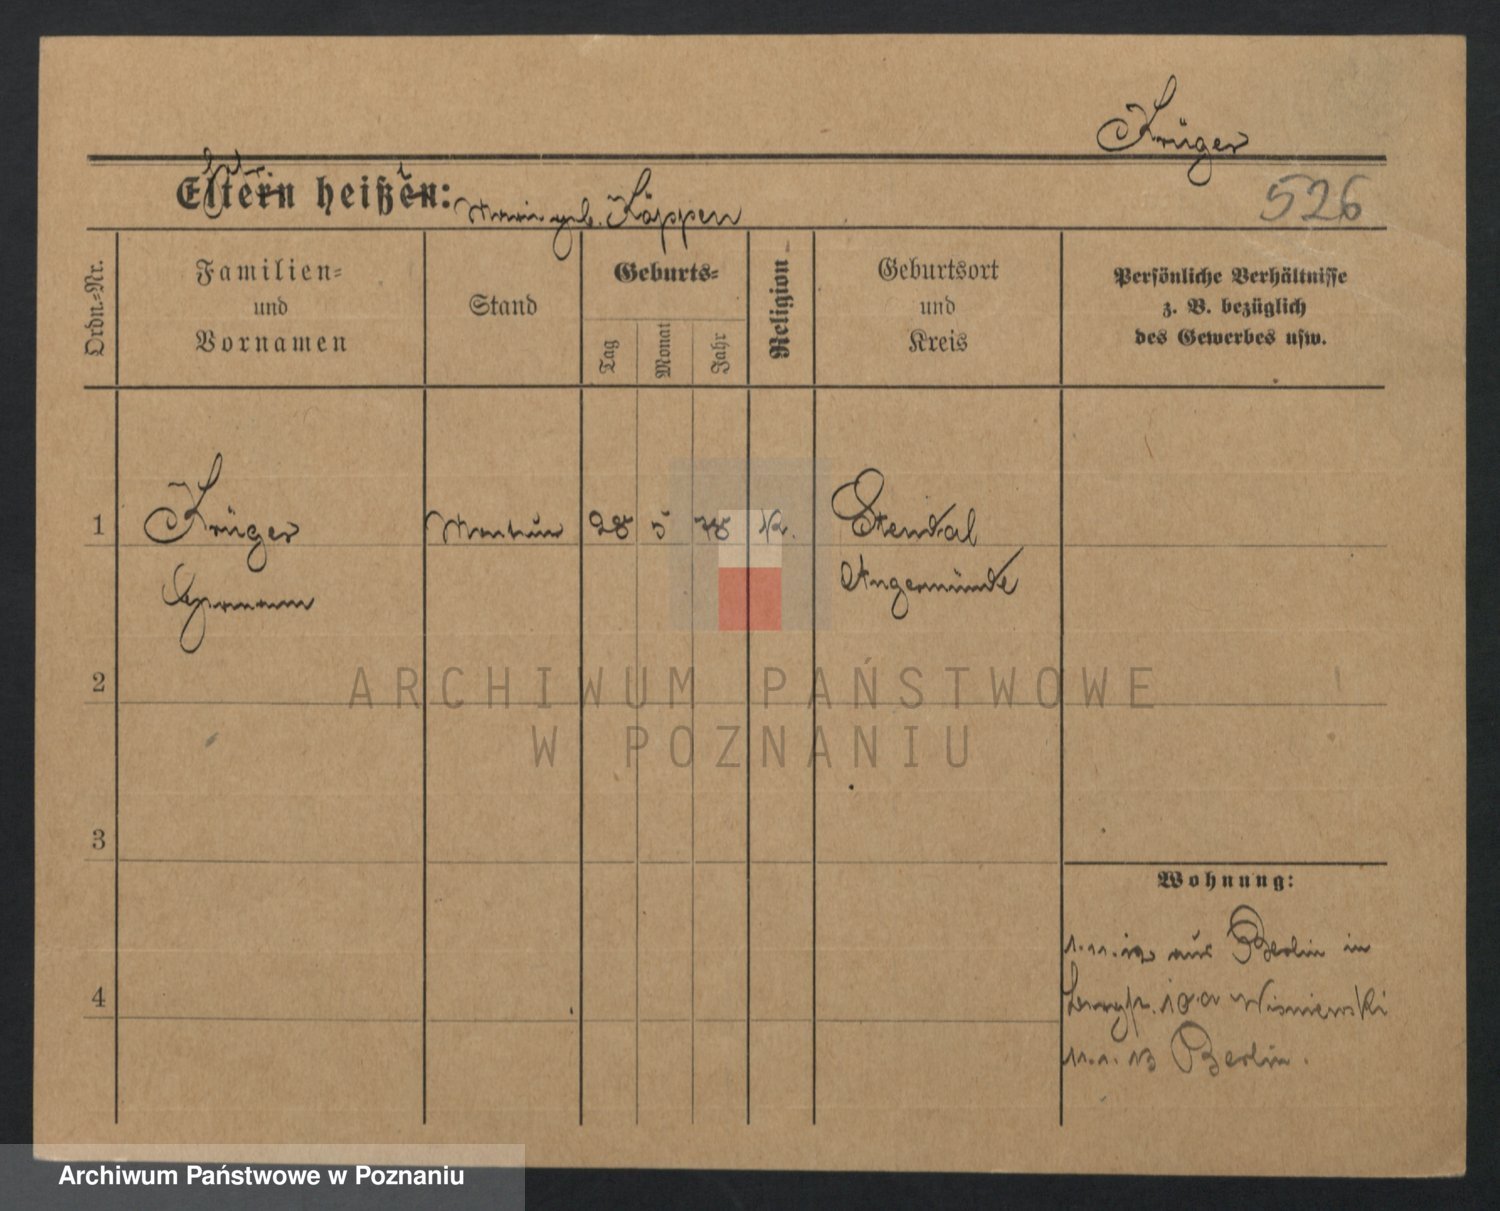 Krüger
Eltern heißen: geb. Köppen
526
Ordn.-Nr.
Familien-
und
Vornamen
Stand
Geburts-
Tag
Monat
Jahr
Religion
Geburtsort
und
Kreis
Persönliche Verhältnisse
z. B. bezüglich
des Gewerbes usw.
1
Krüger
Hermann
Monteur
28
5
78
K.
Stendal
Angermünde
2
3
4
Wohnung:
1.11.12 aus Berlin in
10 a Wisniewski
11.1.13 Berlin.
ARCHIWUM PAŃSTWOWE
W POZNANIU
Archiwum Państwowe w Poznaniu